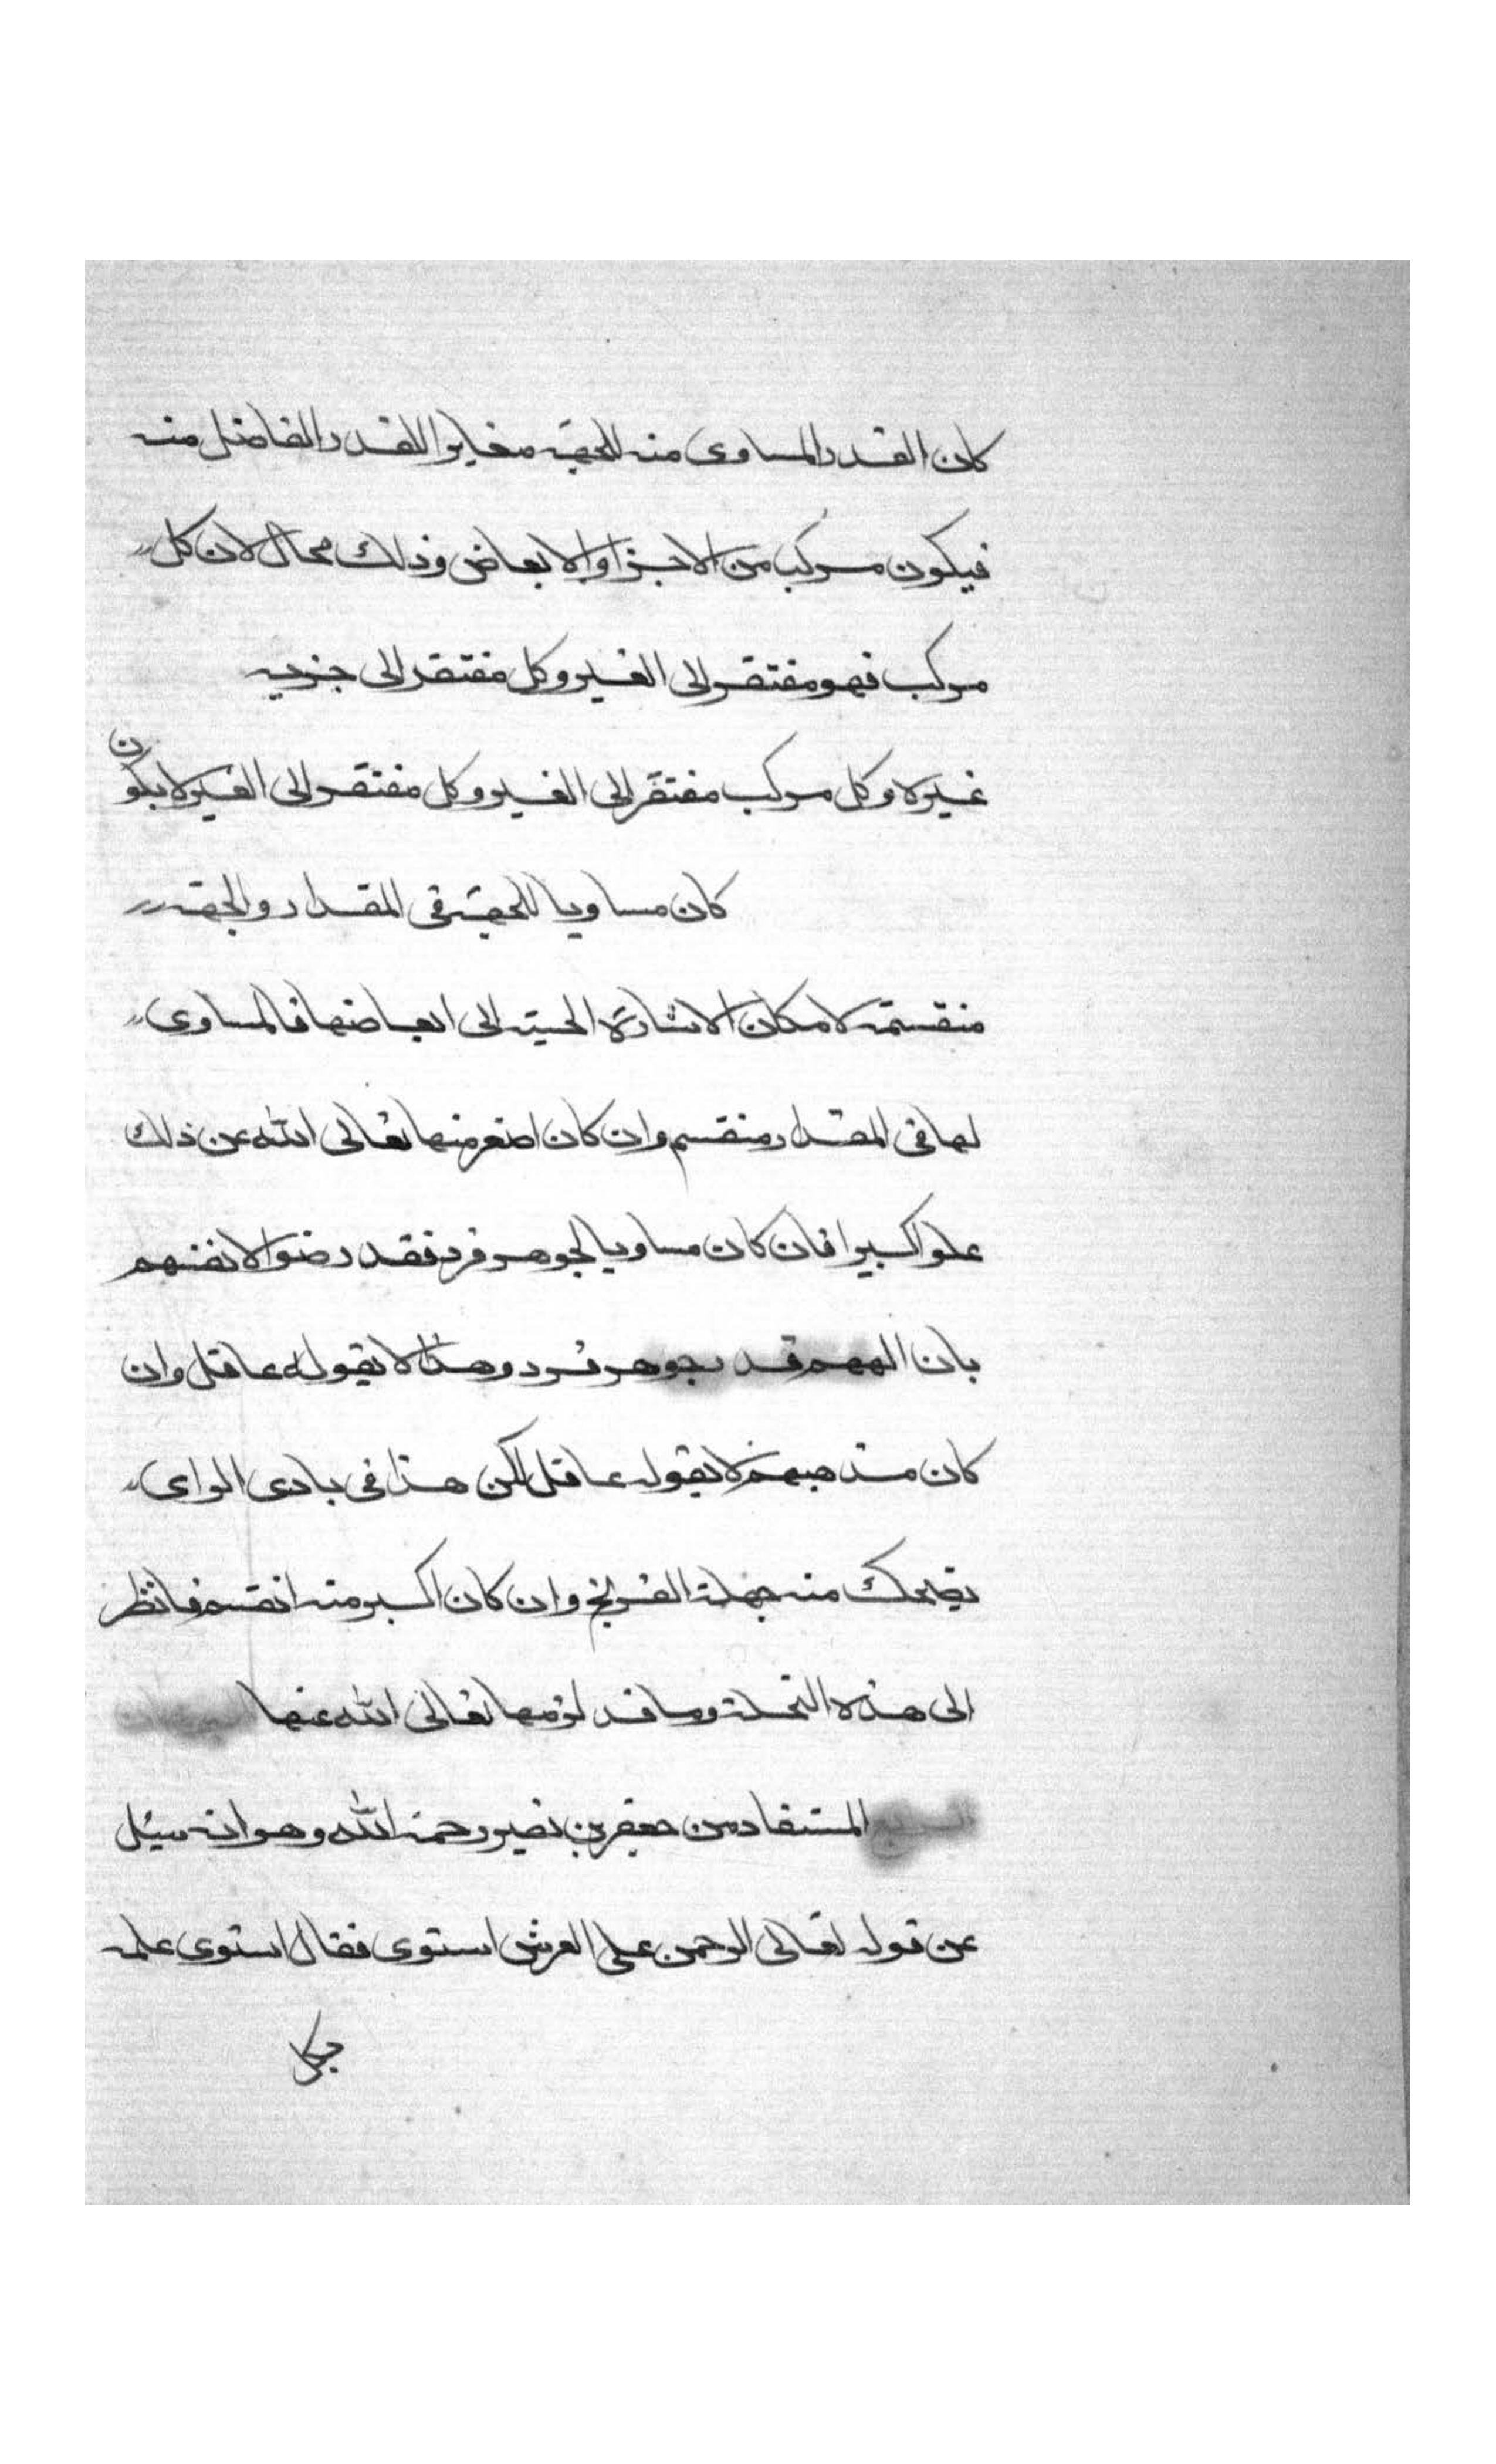 كان القدر المساوى منه للجهة مغايرا للقدر الفاضل منه
فيكون مركب من الاجزا والابعاض وذلك محال لان كل
مركب فهو مفتقر الى الغير وكل مفتقر الى جزيه
غيره وكل مركب مفتقر الى الغير وكل مفتقر الى الغير لا يكون
كان مساويا للجهة فى المقدار والجهة
منقسمة لامكان الاشارة الحسية الى ابعاضها فالمساوى
لها فى المقدار منقسم وان كان اصغر منها تعالى الله عن ذلك
علوا كبيرا فان كان مساويا لجوهر فرد فقد رضوا لانفسهم
بان الههم قدر جوهر فرد وهذا لا يقوله عاقل وان
كان مذهبهم لا يقوله عاقل لكن هذا فى بادى الراى
يضحك منه جهلة الفرنج وان كان اكبر منه انقسم فانظر
الى هذه النحلة وما قد لزمها تعالى الله عنها البرهان
المستفاد من جعفر بن نصير رحمة الله وهو انه سيل
عن قوله تعالى الرحمن على العرش استوى فقال استوى علمه
بكل